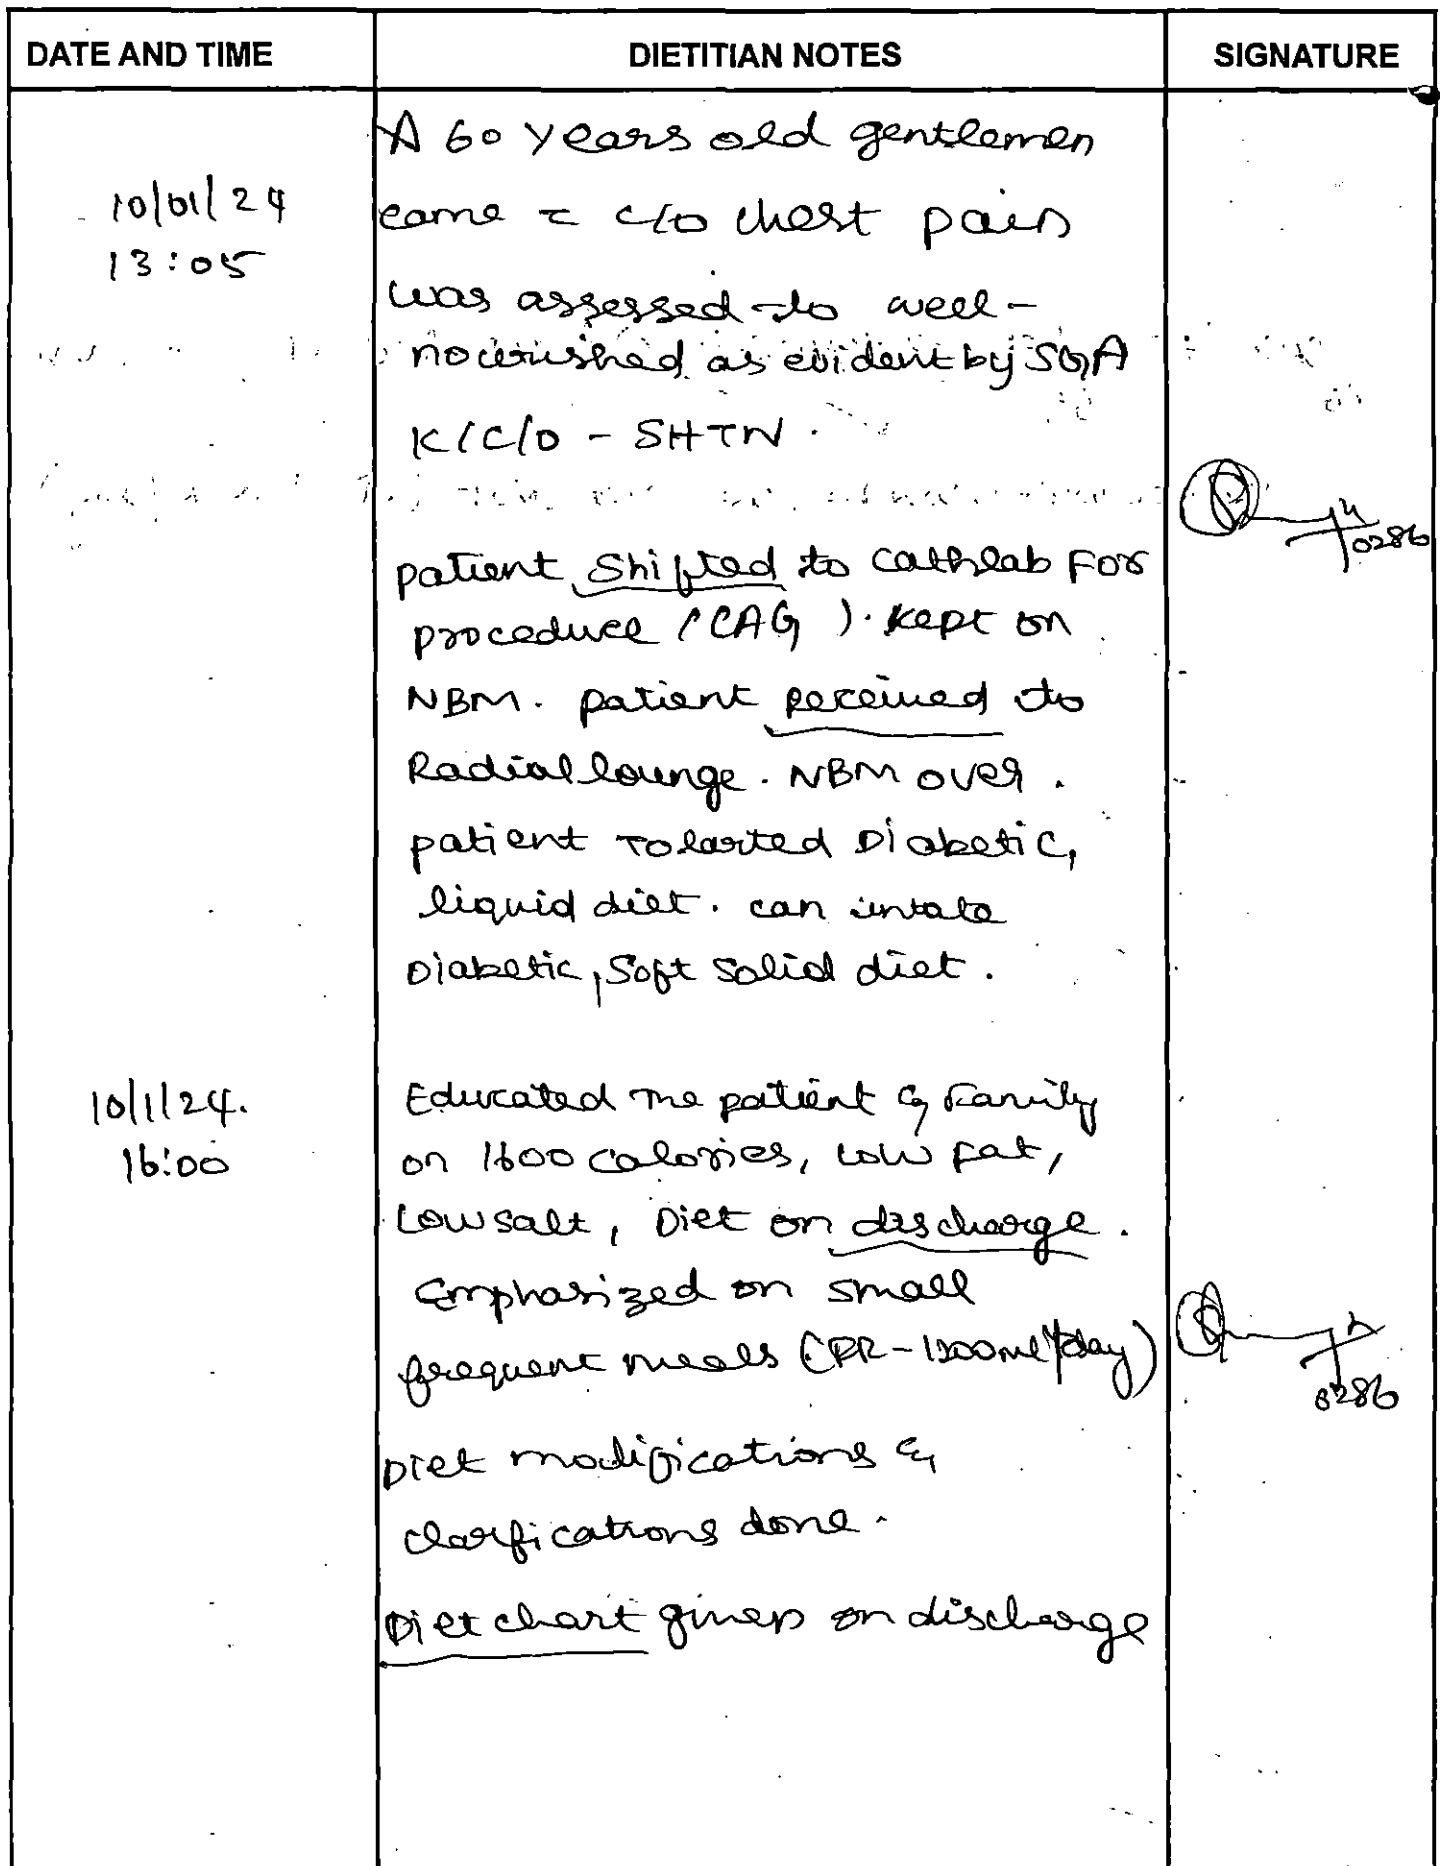 DATE AND TIME DIETITIAN NOTES SIGNATURE
A 60 years old gentlemen
10/01/24 came c c/o chest pain
13:05
was assessed to well-
nourished as evident by SGA
K/C/O - SHTN.
0286
patient Shifted to cathlab For
procedure (CAG). Kept on
NBM. patient received to
Radial lounge. NBM over.
patient Tolarted Diabetic,
liquid diet. can intake
Diabetic, Soft Solid diet.
10/1/24. Educated the patient & Family
16:00 on 1600 calories, Low Fat,
Low salt, Diet on discharge.
Emphasized on small
frequent meals ( /day)
0286
Diet modifications &
clarfications done.
Diet chart given on discharge